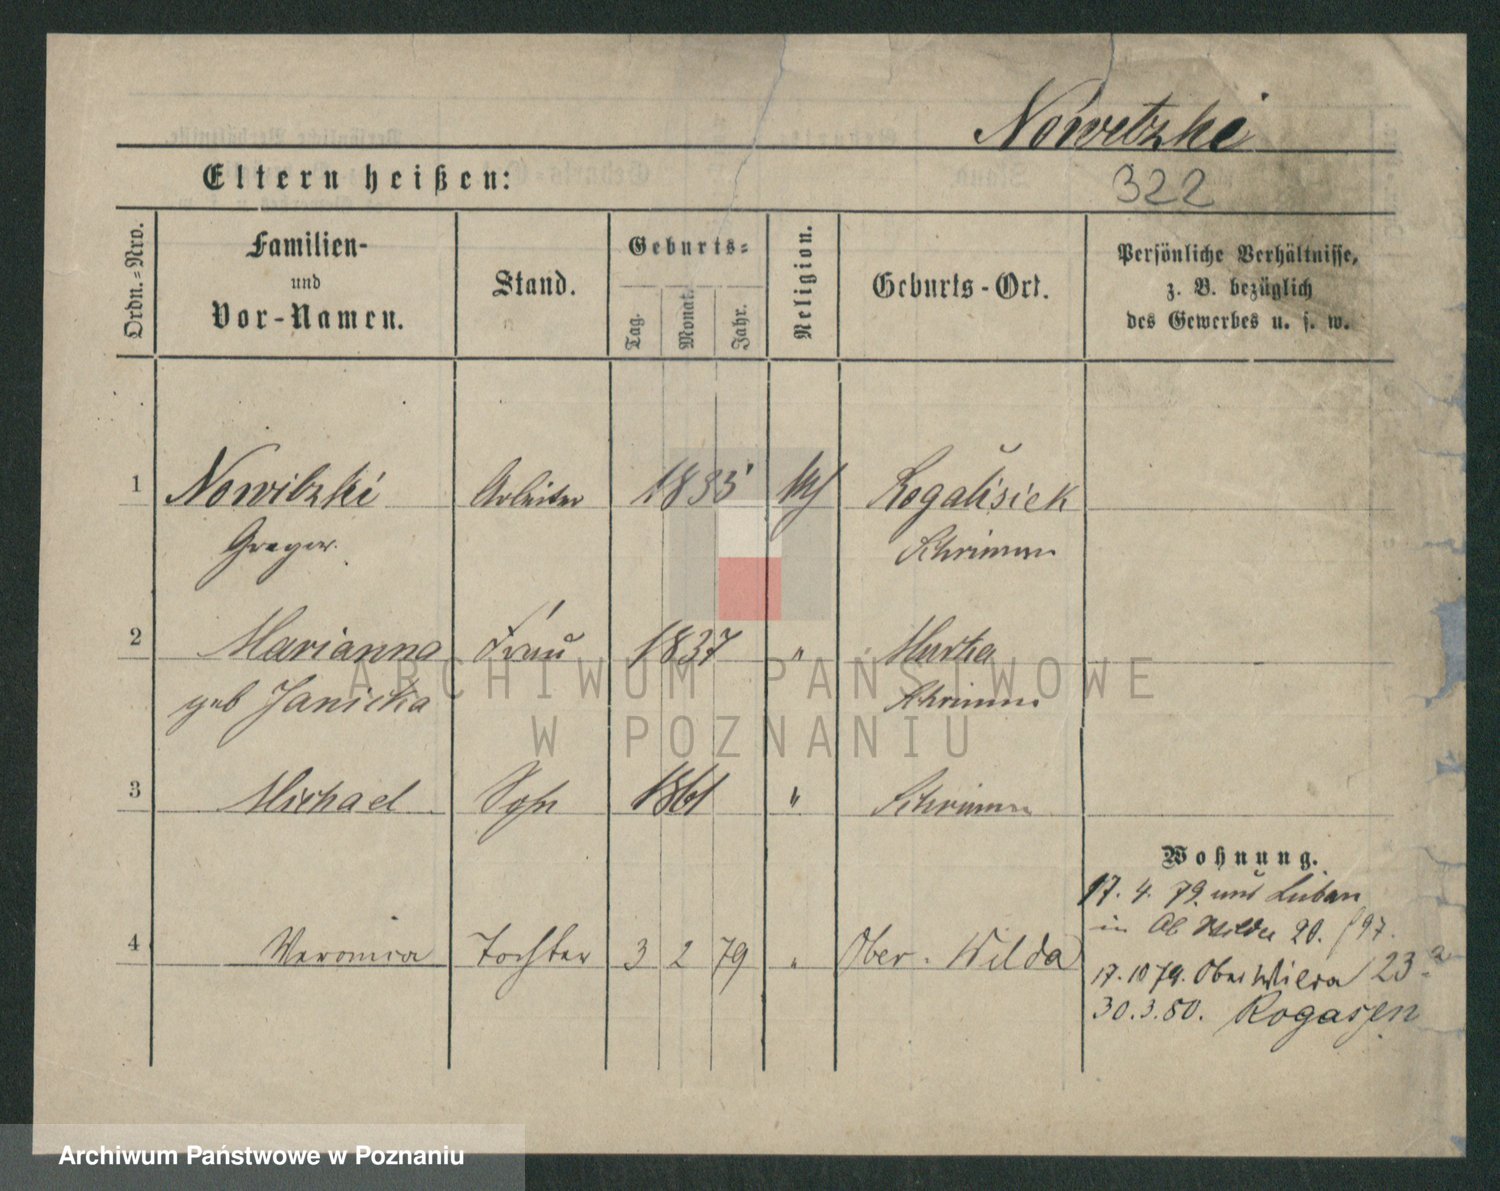 Nowitzki
Eltern heißen:
322
Ordn.=Nro.
Familien-
und
Vor-Namen.
Stand.
Geburts=
Tag.
Monat.
Jahr.
Religion.
Geburts-Ort.
Persönliche Verhältnisse,
z. B. bezüglich
des Gewerbes u. s. w.
1 Nowitzki Arbeiter 1835 Rogalisiek
Gregor. Schrimm
2 Marianna Frau 1837 " Murka
geb Janicka Schrimm
3 Michael Sohn 1861 " Schrimm
Wohnung.
17. 4. 79. Luban
in Ob Wilda 20.
4 Veronica Tochter 3 2 79 " Ober-Wilda
17. 10 79. Ober Wilda 23a
30. 3. 80. Rogasen
ARCHIWUM PAŃSTWOWE
W POZNANIU
Archiwum Państwowe w Poznaniu